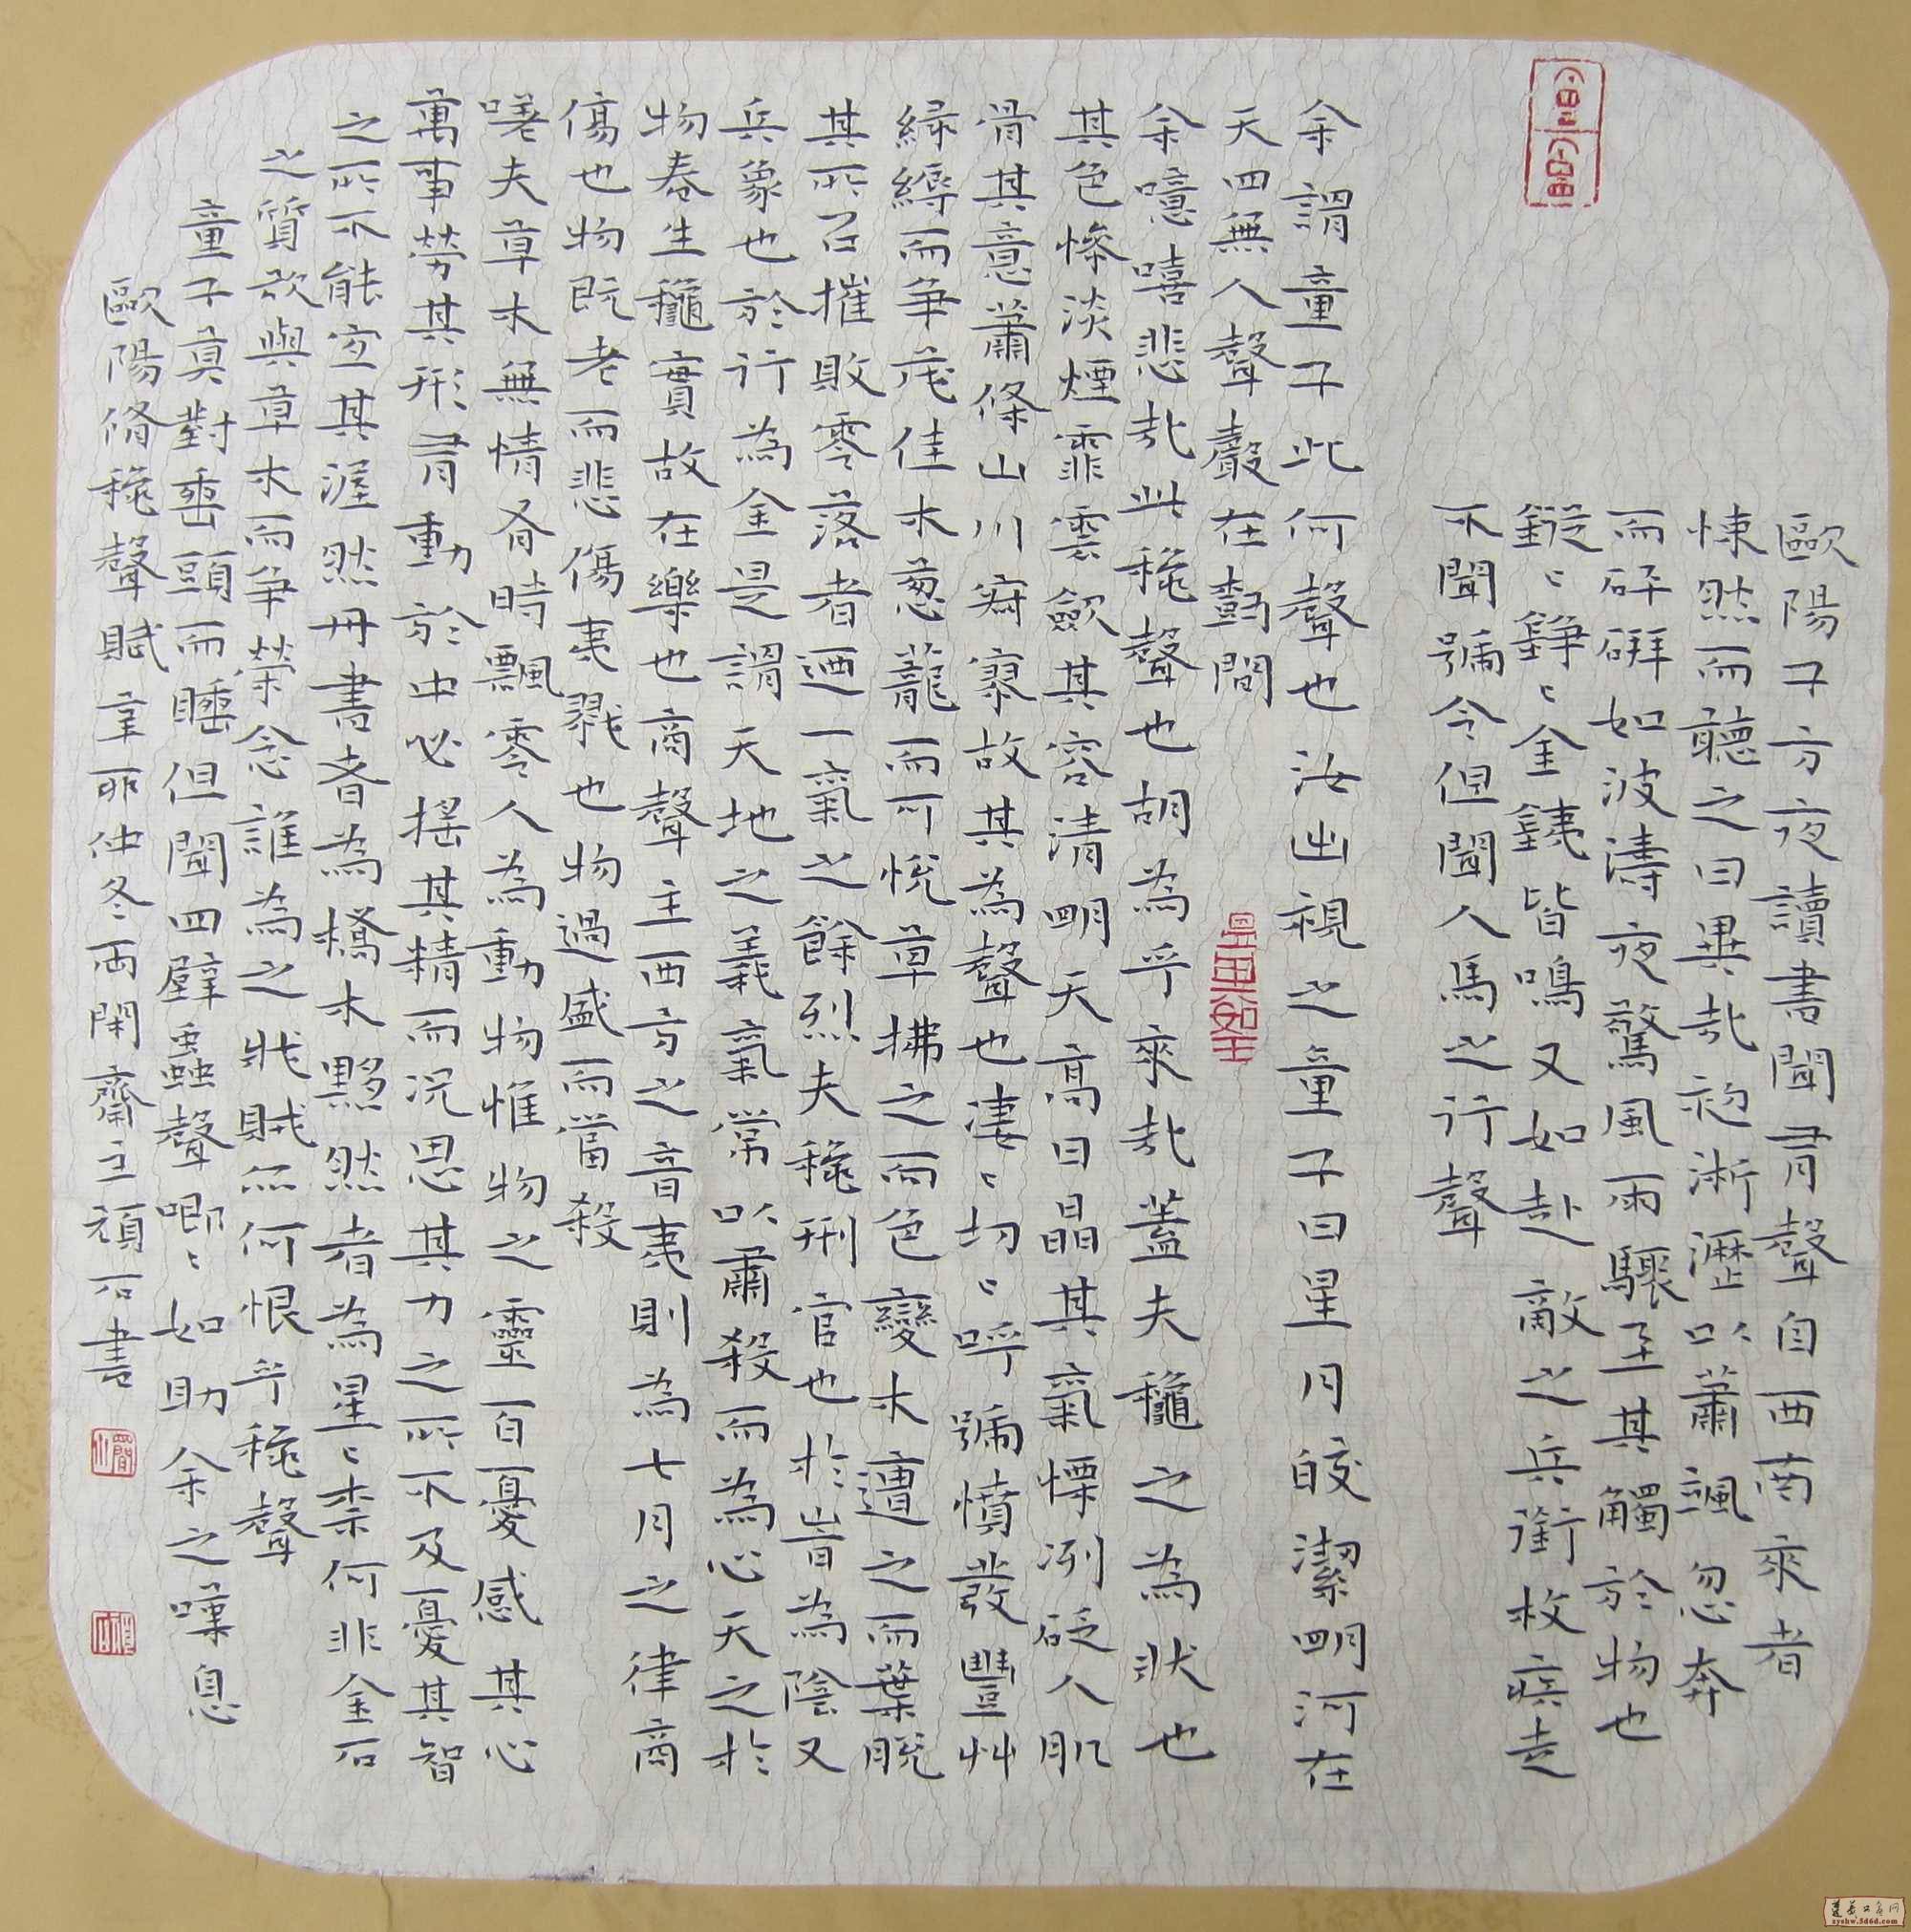 歐陽子方夜讀書聞有聲自西南來者
悚然而聽之曰異哉初淅瀝以蕭颯忽奔
而砰硑如波濤夜驚風雨驟至其觸於物也
鏦〻錚〻金鐵皆鳴又如赴敵之兵銜枚疾走
不聞號令但聞人馬之行聲
余謂童子此何聲也汝出視之童子曰星月皎潔明河在
天四無人聲聲在樹間
余噫嘻悲哉此秋聲也胡為乎來哉蓋夫秋之為狀也
其色慘淡煙霏雲斂其容清明天高日晶其氣慄冽砭人肌
骨其意蕭條山川寂寥故其為聲也淒〻切〻呼號憤發豐艸
綠縟而爭茂佳木蔥蘢而可悅草拂之而色變木遭之而葉脫
其所以摧敗零落者迺一氣之餘烈夫秋刑官也於時為陰又
兵象也於行為金是謂天地之義氣常以肅殺而為心天之於
物春生秋實故在樂也商聲主西方之音夷則為七月之律商
傷也物既老而悲傷夷戮也物過盛而當殺
嗟夫草木無情有時飄零人為動物惟物之靈百憂感其心
萬事勞其形有動於中必搖其精而況思其力之所不及憂其智
之所不能宜其渥然丹書者為槁木黟然者為星〻柰何非金石
之質欲與草木而爭榮念誰為之戕賊无何恨乎秋聲
童子莫對垂頭而睡但聞四壁蟲聲唧〻如助余之嘆息
歐陽脩秋聲賦辛卯仲冬雨閑齋主頑石書
zyshw.5d6d.com